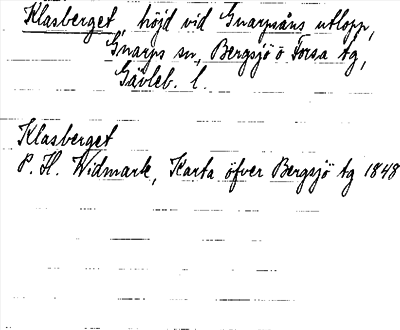 Klasberget, höjd vid Gnarpsåns utlopp,
Gnarps sn, Bergsjö o Forsa tg,
Gävleb. l.
Klasberget
P. H. Widmark, Karta öfver Bergsjö tg 1848